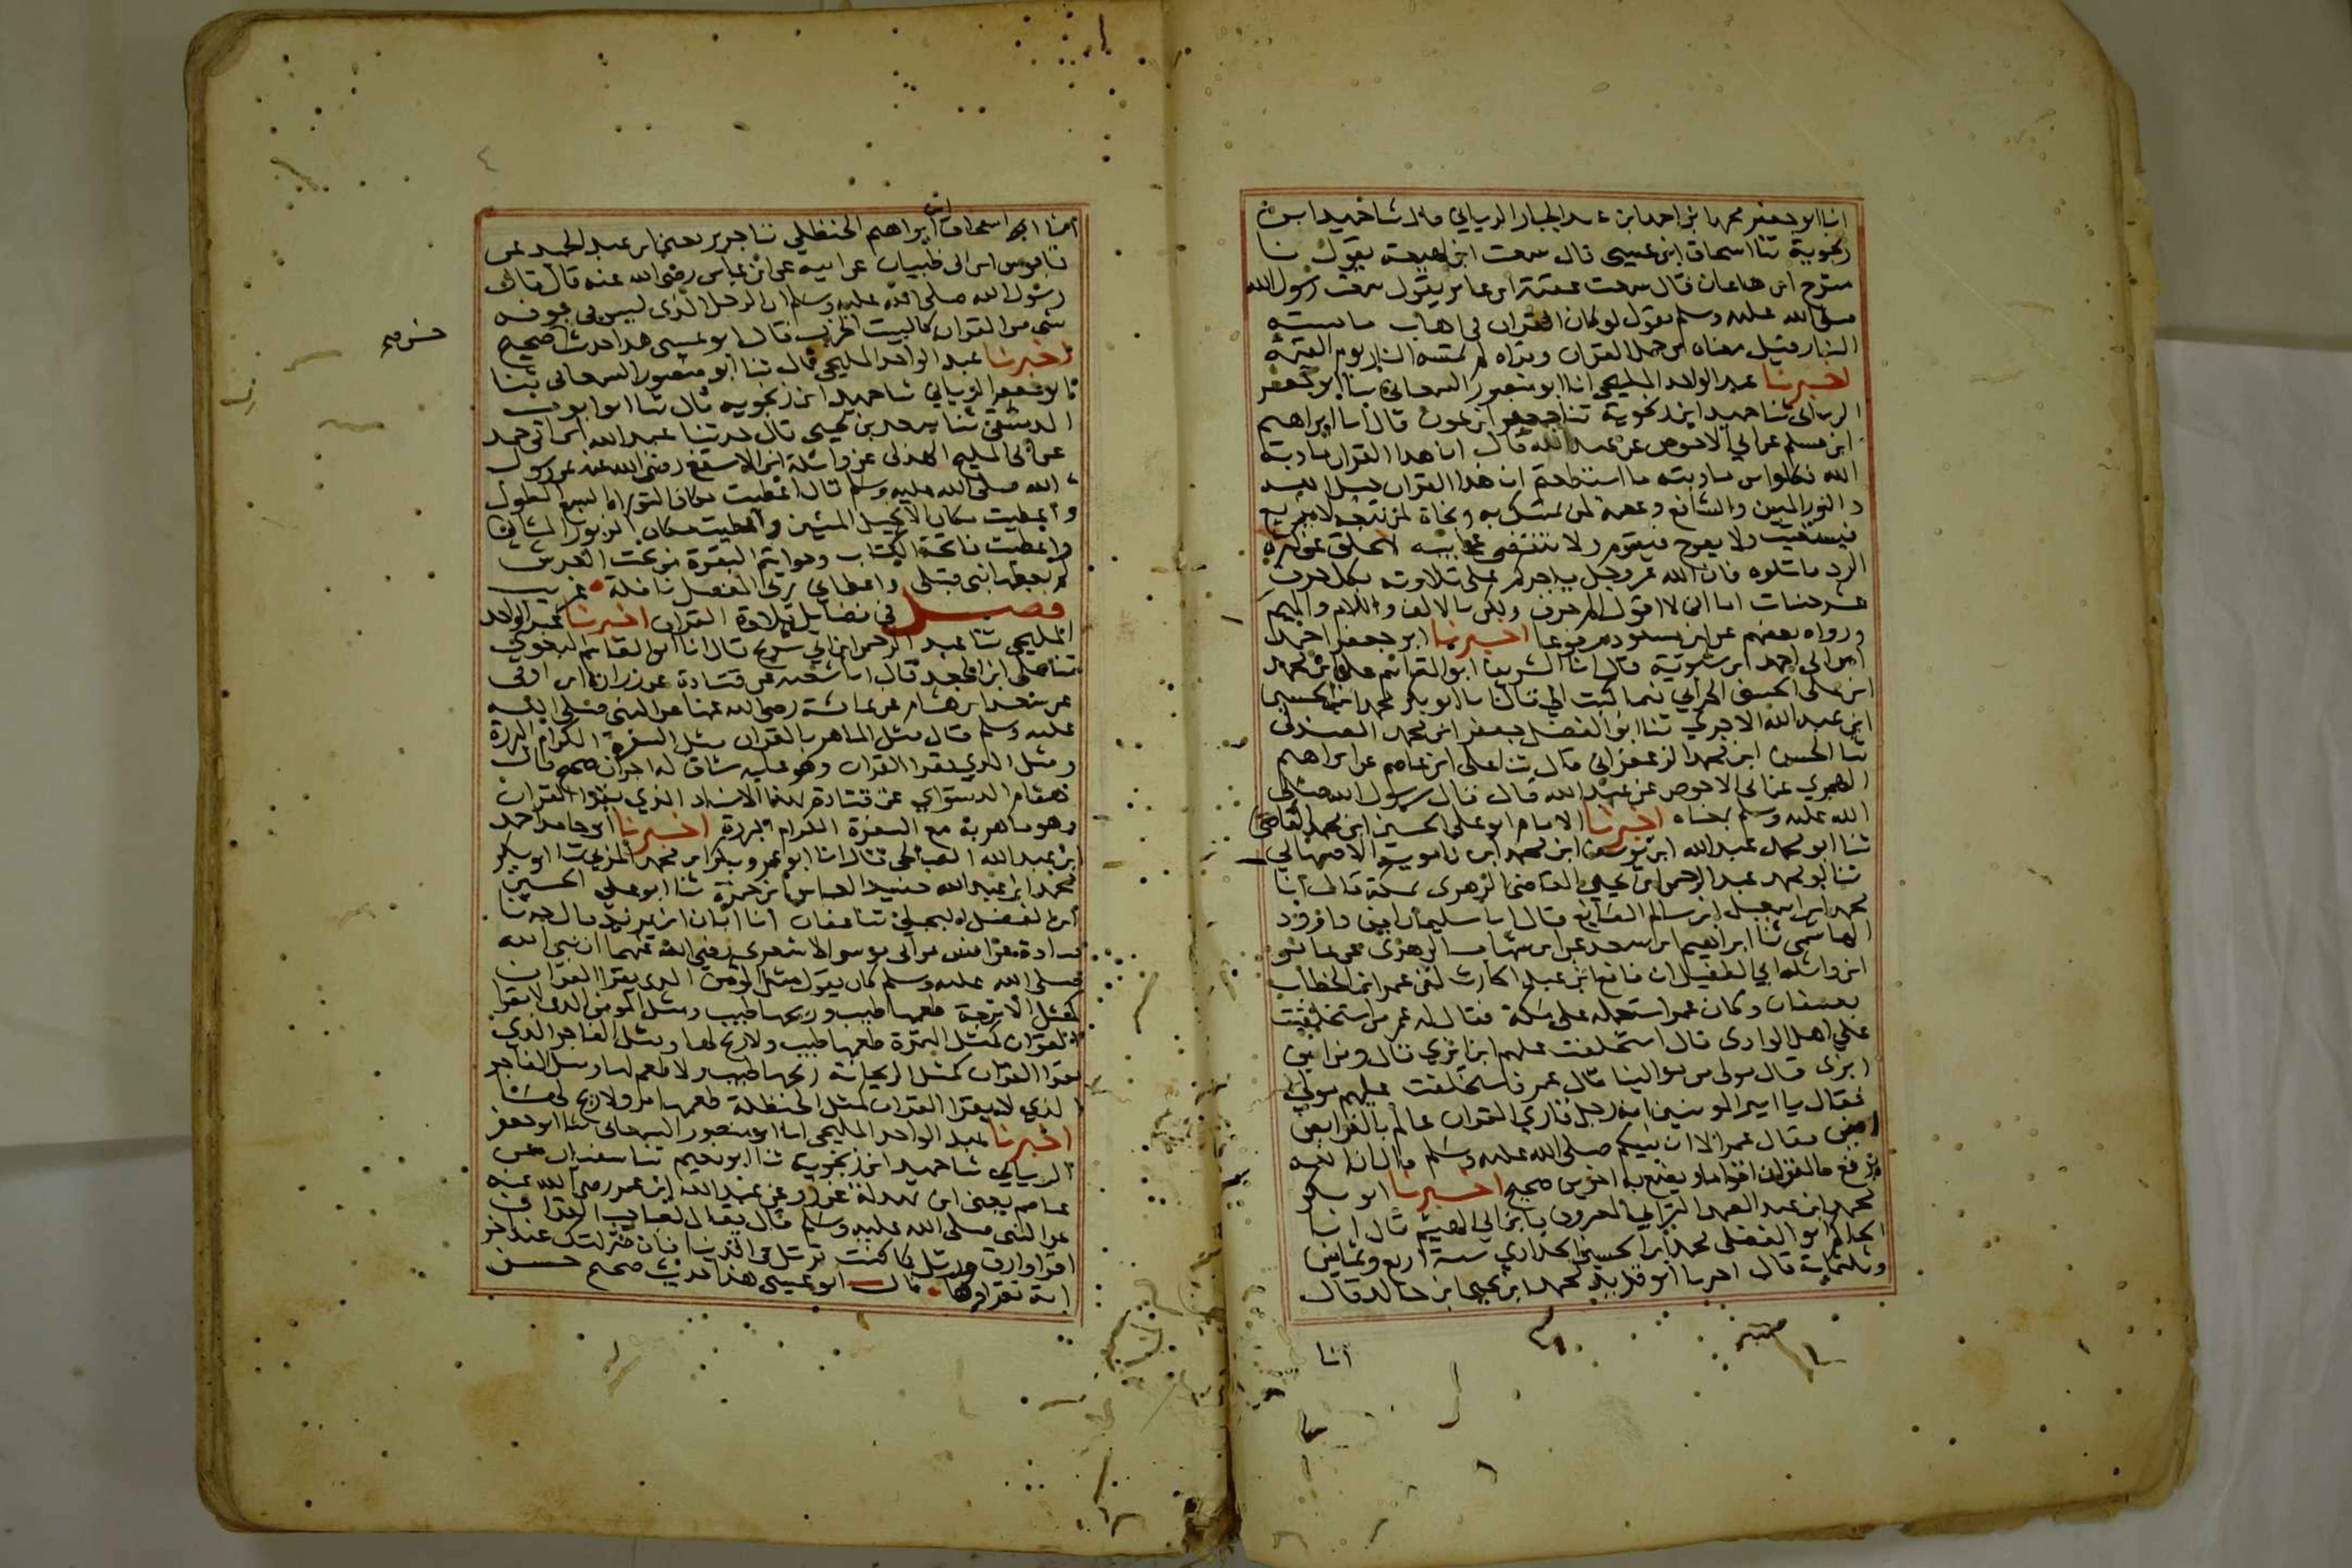 انا ابو جعفر محمد ابن احمد ابن عبد الجبار الرياني قال ثنا حميد ابن
زنجوية ثنا اسحاق ابن عيسى قال سمعت ابن لهيعة يقول ثنا
مشرح ابن هاعان قال سمعت عقبة ابن عامر يقول سمعت رسول الله
صلى الله عليه وسلم يقول لو كان القران في اهاب ما مسته
النار قيل معناه من حمل القران وقراه لم تمسه النار يوم القيمة
اخبرنا عبد الواحد المليحي انا ابو منصور السمعاني ثنا ابو جعفر
الرياني ثنا حميد ابن زنجوية ثنا جعفر ابن عون قال انا ابراهيم
ابن مسلم عن ابي الاحوص عن عبد الله قال ان هذا القران مادبة
الله فكلوا من مادبته ما استطعتم ان هذا القران حبل الله
والنور المبين والشافع وعصمة لمن تمسك به ونجاة لمن تبعه لا يزيغ
فيستعتب ولا يعوج فيقوم ولا تنقضي عجايبه لا يخلق عن كثرة
الرد فاتلوه فان الله عز وجل ياجركم على تلاوته بكل حرف
عشر حسنات اما اني لا اقول الم حرف ولكن بالالف واللام والميم
ورواه بعضهم عن ابن مسعود مرفوعا اخبرنا ابو جعفر احمد
ابن ابي احمد ابن متوية قال انا الشريف ابو القاسم علي ابن محمد
ابن علي الحسيني الحراني فيما كتب الي قال انا ابو بكر محمد ابن الحسين
ابن عبد الله الاجري ثنا ابو الفضل جعفر ابن محمد الصندلي
ثنا الحسن ابن محمد الزعفراني قال ثنا علي ابن عاصم عن ابراهيم
الهجري عن ابي الاحوص عن عبد الله قال قال رسول الله صلى
الله عليه وسلم بمعناه اخبرنا الامام ابو علي الحسين ابن محمد القاضي
ثنا ابو محمد عبد الله ابن يوسف ابن محمد ابن مامويه الاصبهاني
ثنا ابو محمد عبد الرحمن ابن يحيى القاضي الزهري بمكة قال انا
محمد ابن اسمعيل ابن سالم الصايغ قال انا سليمان ابن داوود
الهاشمي ثنا ابراهيم ابن سعد عن ابن شهاب الزهري عن عامر
ابن واثلة ابي الطفيل ان نافع ابن عبد الحارث لقي عمر ابن الخطاب
بعسفان وكان عمر استعمله على مكة فقال له عمر من استخلفت
علي اهل الوادي قال استخلفت عليهم ابن ابزي قال ومن ابن
ابزى قال مولى من موالينا قال عمر فاستخلفت عليهم مولى
فقال يا امير المومنين انه رجل قاري القران عالم بالفرايض
قاضي فقال عمر الا ان نبيكم صلى الله عليه وسلم قال ان الله
يرفع بالقران اقواما ويضع به اخرين صحيح اخبرنا ابو بكر
محمد ابن عبد الصمد الترابي المعروف بابن ابي الهيثم قال انا
الحاكم ابو الفضل محمد ابن الحسين الحدادي سنة اربع وثمانين
وثلثماية قال اخبرنا ابو يزيد محمد ابن يحيى ابن خالد قال
انا
انا اسحاق ابن ابراهيم الحنظلي ثنا جرير يعني ابن عبد الحميد عن
قابوس ابن ابي ظبيان عن ابيه عن ابن عباس رضي الله عنه قال قال
رسول الله صلى الله عليه وسلم ان الرجل الذي ليس في جوفه
شي من القران كالبيت الخرب قال ابو عيسى هذا حديث صحيح
حسن صح
اخبرنا عبد الواحد المليحي قال ثنا ابو منصور السمعاني ثنا
ابو جعفر الرياني ثنا حميد ابن زنجويه قال ثنا ابو ايوب
الدمشقي ثنا سعد بن يحيى قال حدثنا عبد الله ابن ابي حميد
عن ابي المليح الهذلي عن واثلة ابن الاسقع رضي الله عنه عن رسول
الله صلى الله عليه وسلم قال اعطيت مكان التوراة السبع الطول
واعطيت مكان الانجيل المئين واعطيت مكان الزبور المثاني
واعطيت فاتحة الكتاب وخواتيم البقرة من تحت العرش
لم يعطها نبي قبلي واعطاني ربي المفصل نافلة غريب
فصل في فضايل تلاوة القران اخبرنا عبد الواحد
المليحي ثنا عبد الرحمن ابن ابي شريح قال انا ابو القاسم البغوي
ثنا علي ابن الجعد قال انا شعبه عن قتادة عن زرارة ابن اوفى
عن سعد ابن هشام عن عايشة رضي الله عنها عن النبي صلى الله
عليه وسلم قال مثل الماهر بالقران مثل السفرة الكرام البررة
ومثل الذي يقرا القران وهو عليه شاق له اجران صحيح وقال
هشام الدستواي عن قتادة بهذا الاسناد الذي يقرا القران
وهو ماهر به مع السفرة الكرام البررة اخبرنا ابو حامد احمد
ابن عبد الله الصالحي قال انا ابو عمر وبكر ابن محمد المزني ثنا ابو بكر
محمد ابن عبد الله حفيد العباس ابن حمزة ثنا ابو علي الحسين
ابن الفضل البجلي ثنا عفان انا ابان ابن يزيد قال حدثنا
قتادة عن انس عن ابي موسى الاشعري رضي الله عنهما ان نبي الله
صلى الله عليه وسلم كان يقول مثل المومن الذي يقرا القران
كمثل الاترجة طعمها طيب وريحها طيب ومثل المومن الذي لا يقرا
القران كمثل التمرة طعمها طيب ولا ريح لها ومثل الفاجر الذي
يقرا القران كمثل الريحانة ريحها طيب ولا طعم لها ومثل الفاجر
الذي لا يقرا القران كمثل الحنظلة طعمها مر ولا ريح لها
اخبرنا عبد الواحد المليحي انا ابو منصور السمعاني ثنا ابو جعفر
الرياني ثنا حميد ابن زنجوية ثنا ابو نعيم ثنا سفيان عن
عاصم يعني ابن بهدلة عن زر عن عبد الله ابن عمر رضي الله عنه
عن النبي صلى الله عليه وسلم قال يقال لصاحب القران
اقرا وارق ورتل كما كنت ترتل في الدنيا فان منزلتك عند اخر
اية تقراوها قال ابو عيسى هذا حديث صحيح حسن